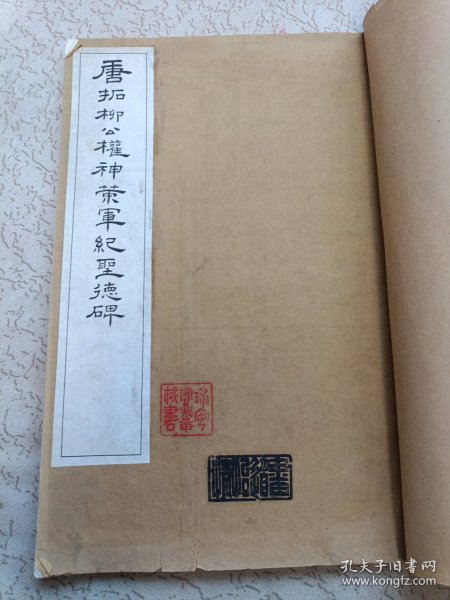 唐拓柳公權神策軍紀聖德碑
孔夫子旧书网
www.kongfz.com